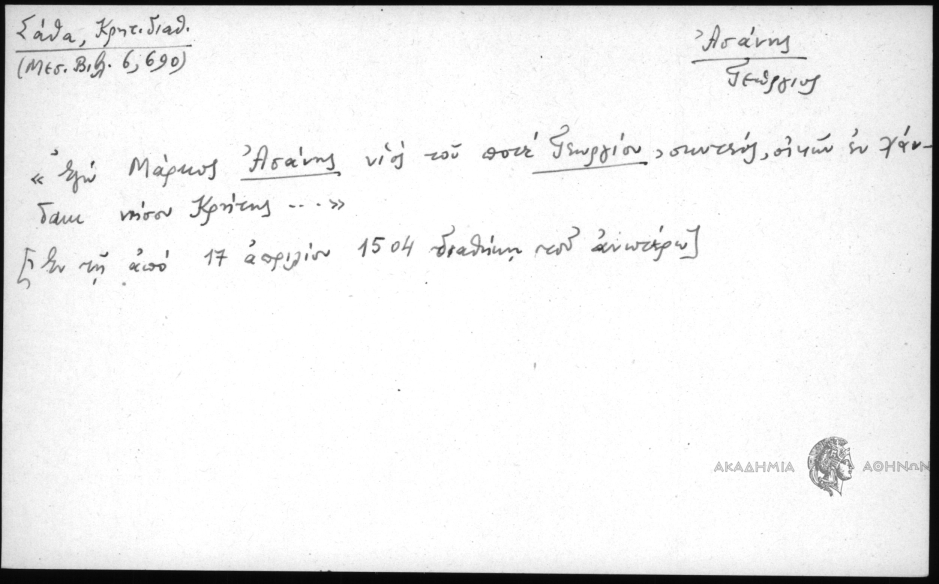 Σάθα, Κρητ. διαθ.
(Μεσ. Βιβλ. 6, 690)
Ἀσάνης
Γεώργιος
« Ἐγὼ Μάρκος Ἀσάνης υἱὸς τοῦ ποτὲ Γεωργίου, σκυτεύς, οἰκῶν ἐν Χάν-
δακι νήσου Κρήτης ....»
[Ἐν τῇ ἀπό 17 ἀπριλίου 1504 διαθήκῃ τοῦ ἀνωτέρω]
ΑΚΑΔΗΜΙΑ ΑΘΗΝΩΝ